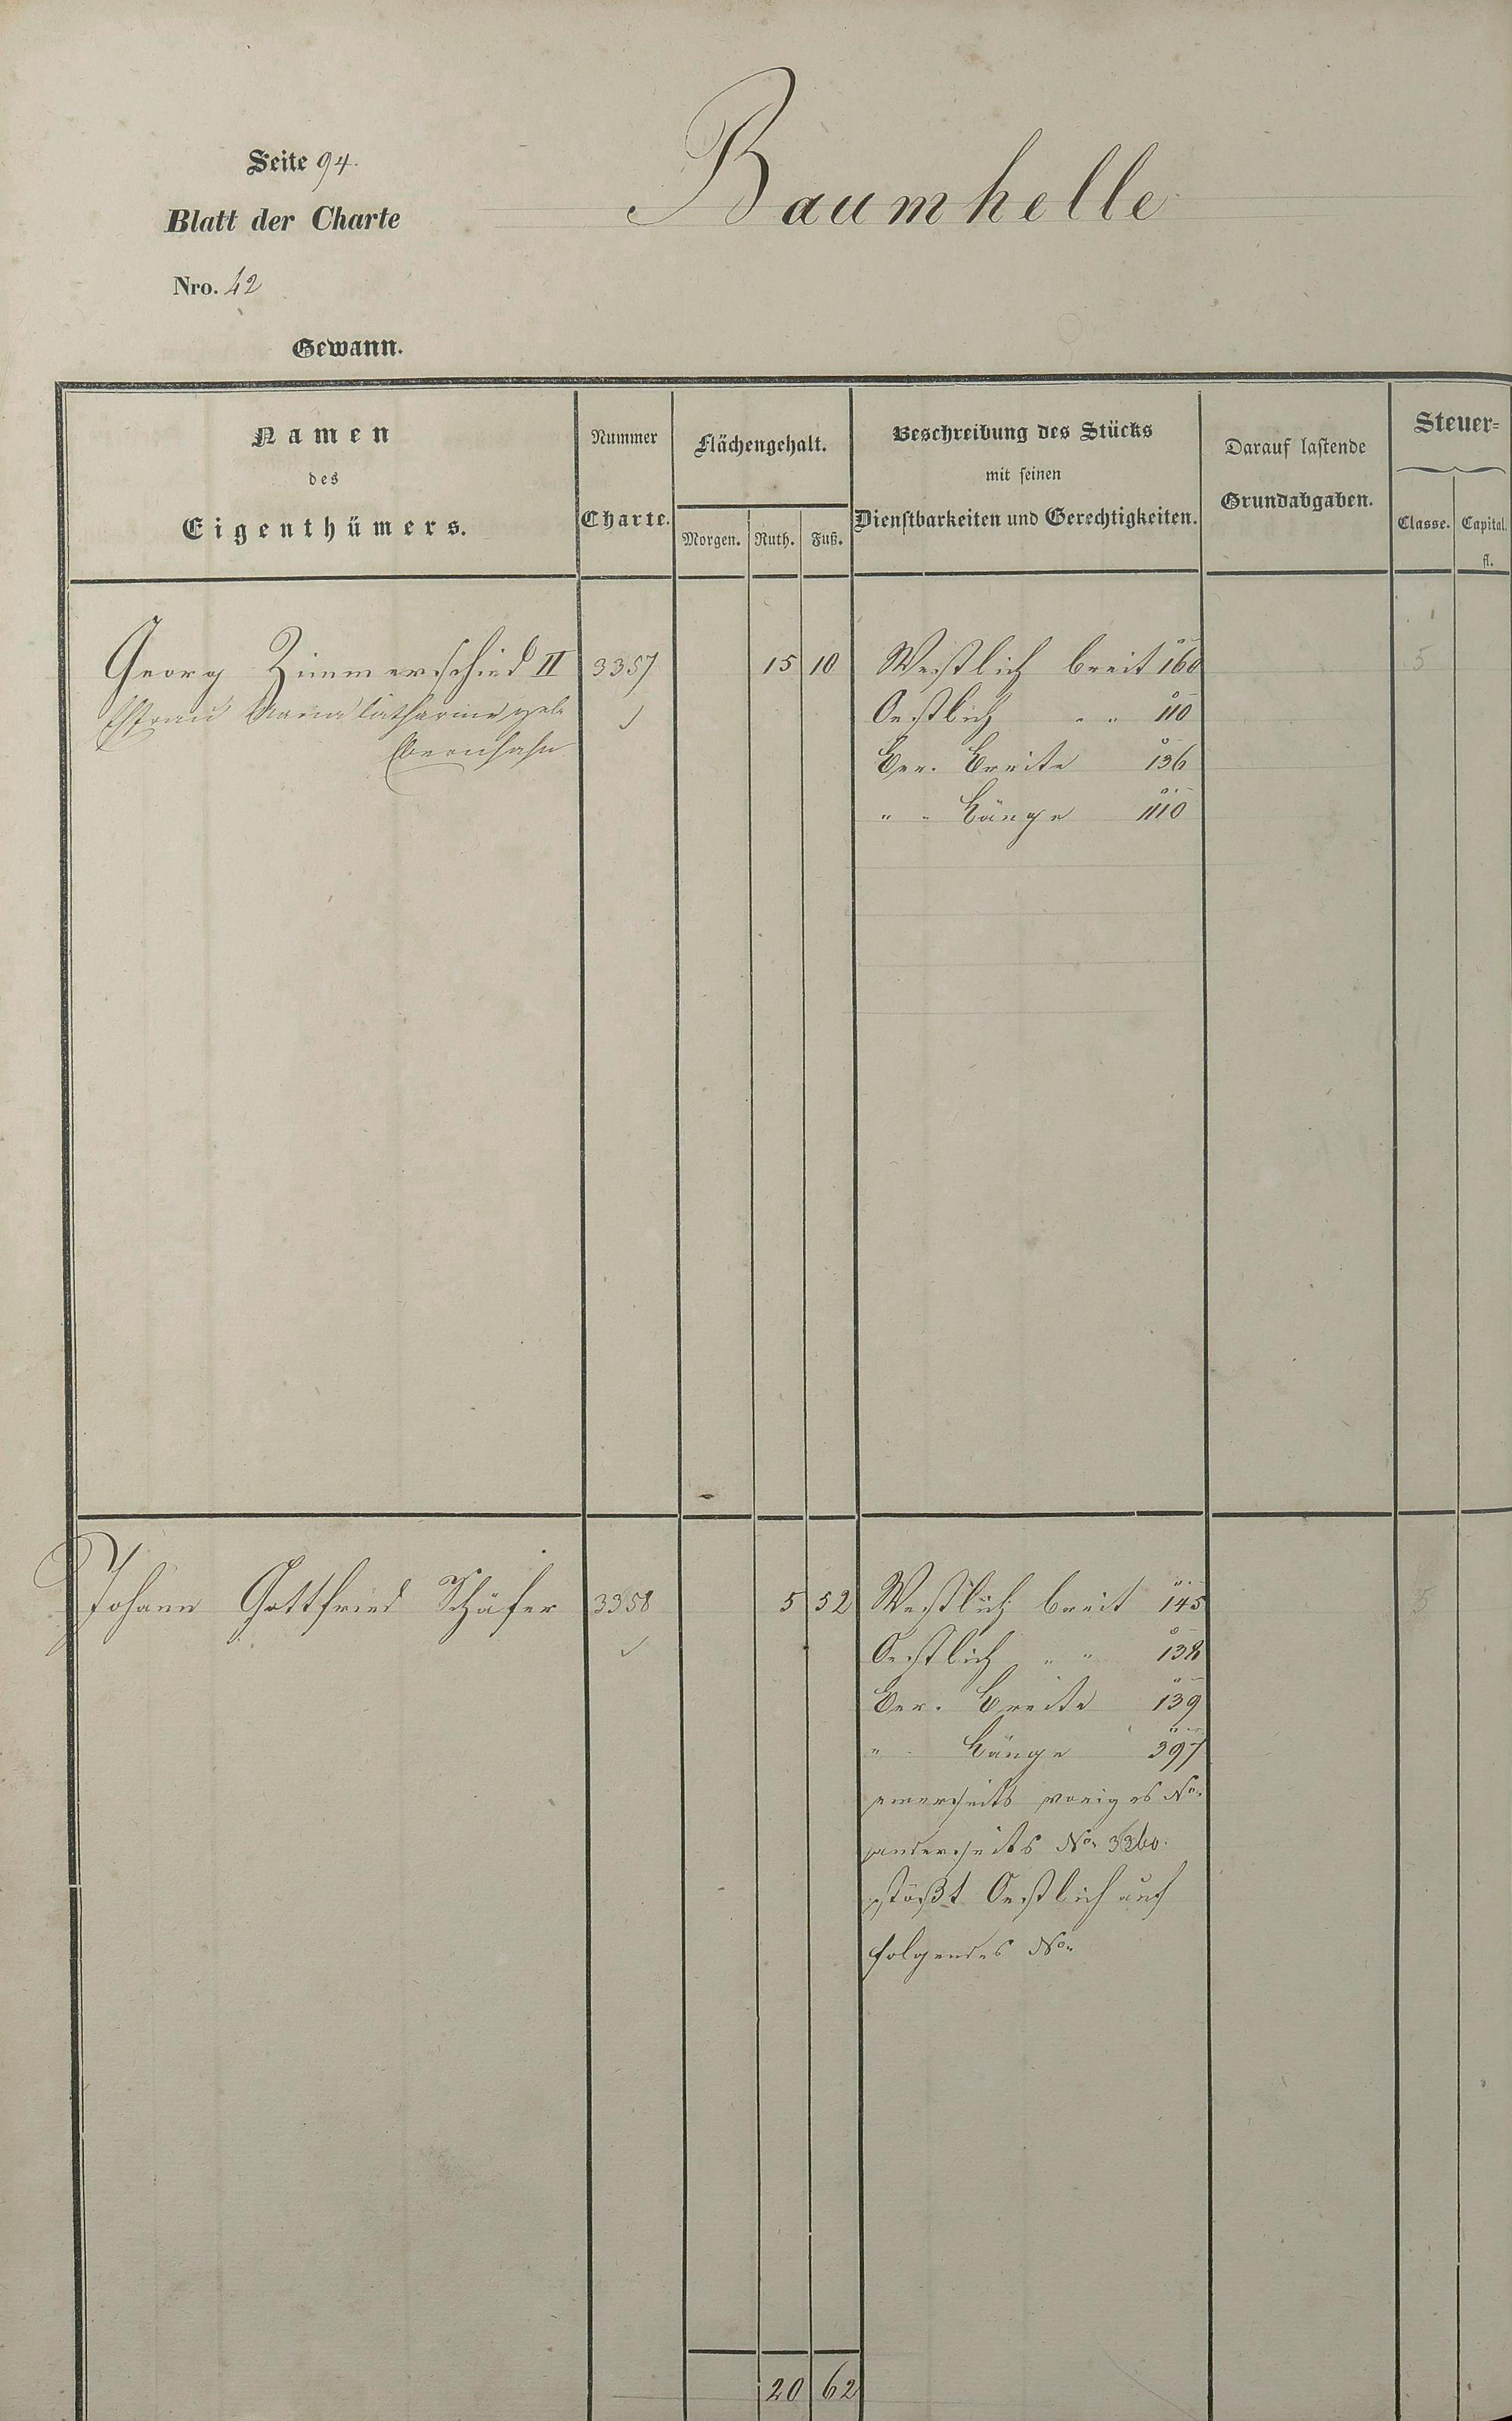 Seite 94.
Baumhelle
Blatt der Charte
Nro. 42
Gewann.
Namen
des
Eigenthümers.
Nummer
Charte.
Flächengehalt.
Morgen. Ruth. Fuß.
Beschreibung des Stücks
mit seinen
Dienstbarkeiten und Gerechtigkeiten.
Darauf lastende
Grundabgaben.
Steuer-
Classe. Capital.
fl.
Georg Zimmerschied II 3357 15 10 Westlich breit 160 5
Ehefrau Maria Catharine geb. Oestlich " " 110
Ebernhahn Ber. Breite 136
" " Länge 1110
Johann Gottfried Schäfer 3358 5 52 Westlich breit 145 5
Oestlich " " 138
Ber. Breite 139
" Länge 397
einerseits voriges No.
anderseits No. 3360.
stößt Oestlich auf
folgendes No.
20 62